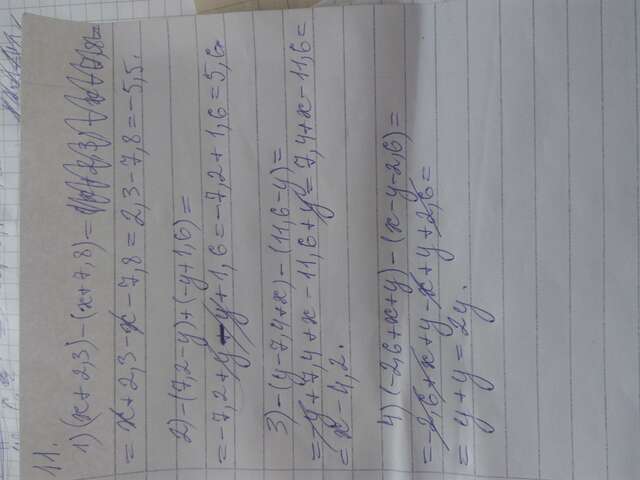 11.
1) (x+2,3)-(x+7,8)=
=x+2,3-x-7,8=2,3-7,8=-5,5.
2) -(7,2-y)+(-y+1,6)=
=-7,2+y-y+1,6=-7,2+1,6=5,6
3) -(y-7,4+x)-(11,6-y)=
=-y+7,4+x-11,6+y=7,4+x-11,6=
=x-4,2.
4) (-2,6+x+y)-(x-y-2,6)=
=-2,6+x+y-x+y+2,6=
=y+y=2y.